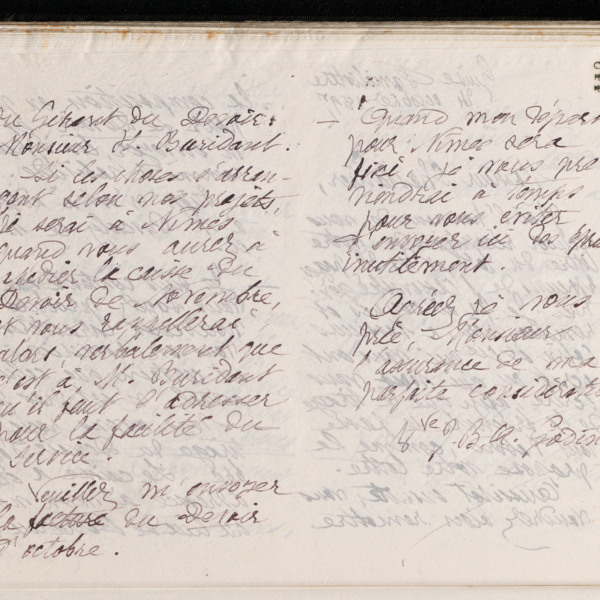 du Gérant du Devoir
Monsieur H. Buridant.
Si les choses s'arran-
gent selon nos projets,
je serai à Nîmes
quand vous aurez à
expédier la caisse du
Devoir de Novembre,
et vous rappellerai,
alors, verbalement que
c'est à M. Buridant
qu'il faut l'adresser
pour la facilité du
service.
Veuillez m'envoyer
la facture du Devoir
d'octobre.
Quand mon départ
pour Nîmes sera
fixé, je vous pré
viendrai à temps
pour vous éviter
d'envoyer ici des épr
inutilement.
Agréez je vous
prie, Monsieur
l'assurance de ma
parfaite considérati
Vve J. Bte A. Godin